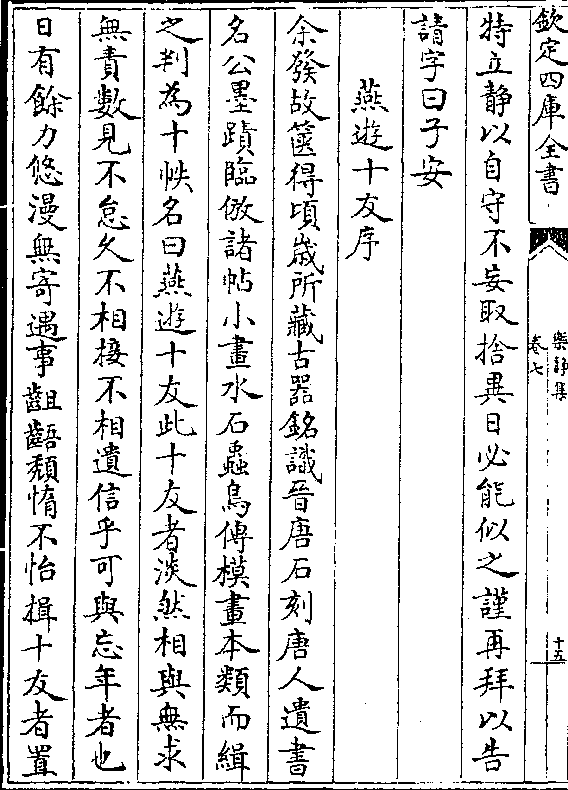 欽定四庫全書
樂静集
卷七
十五
特立静以自守不妄取捨異日必能似之謹再拜以告
請字曰子安
燕遊十友序
余發故篋得頃歲所藏古器銘識晉唐石刻唐人遺書
名公墨蹟臨倣諸帖小畫水石蟲鳥傳模畫本類而緝
之判為十帙名曰燕遊十友此十友者淡然相與無求
無責數見不怠久不相接不相遺信乎可與忘年者也
日有餘力悠漫無寄遇事齟齬頽惰不怡揖十友者置